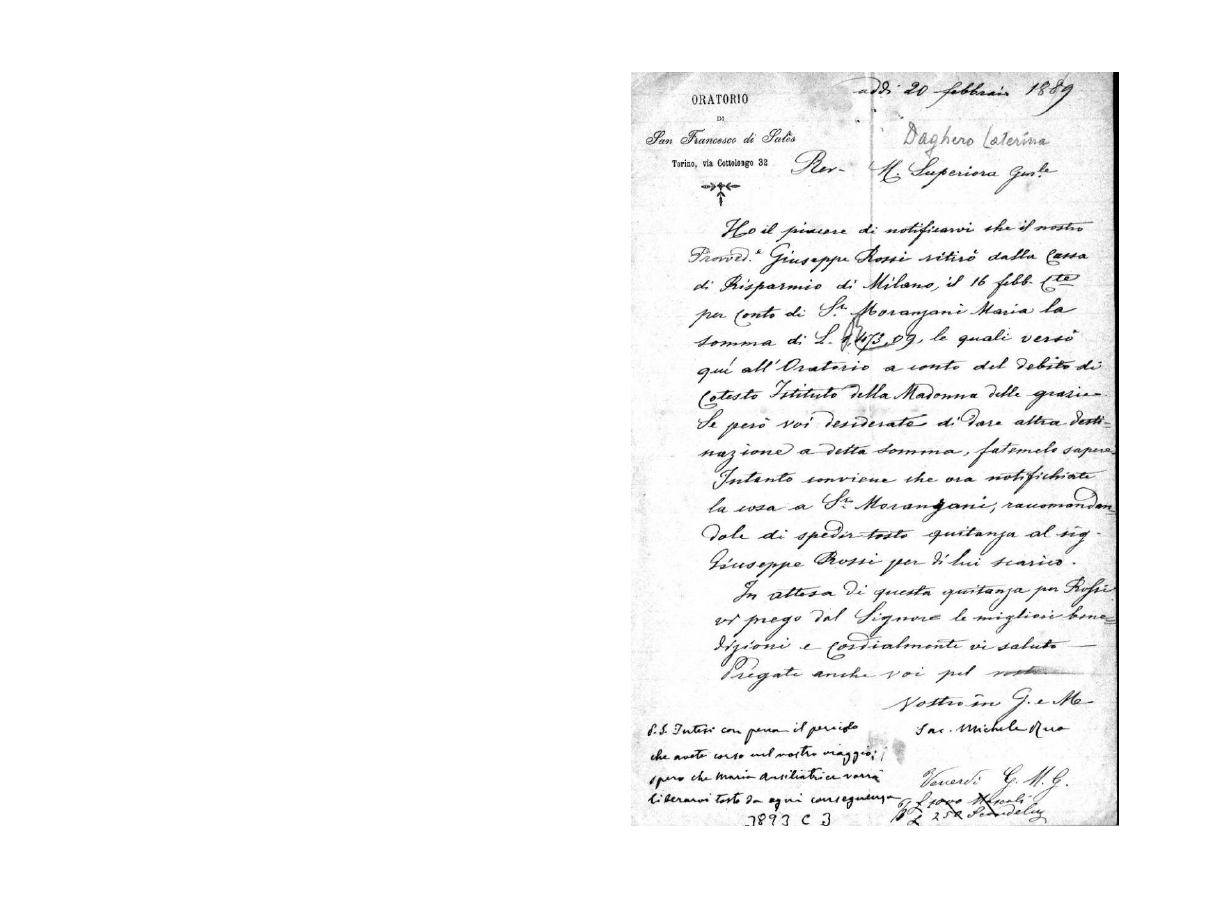 addì 20 febbraio 1889
ORATORIO
DI
San Francesco di Sales
Torino, via Cottolengo 32
Daghero Caterina
Rev. M. Superiora Gen.le
Ho il piacere di notificarvi che il nostro
Provved.e Giuseppe Rossi ritirò dalla Cassa
di Risparmio di Milano, il 16 febb. Cte
per conto di Sr. Moranzani Maria la
somma di L. 473,09, le quali versò
quì all'Oratorio a conto del debito di
Cotesto Istituto della Madonna delle grazie
Se però voi desiderate di dare altra desti=
nazione a detta somma, fatemelo sapere.
Intanto conviene che ora notifichiate
la cosa a Sr. Moranzani, raccomandan=
dole di spedir tosto quitanza al sig.
Giuseppe Rossi per di lui scarico.
In attesa di questa quitanza per Rossi
vi prego dal Signore le migliori bene=
dizioni e cordialmente vi saluto —
Pregate anche voi pel
Vostro in G. e M.
Sac. Michele Rua
P.S. Intesi con pena il pericolo
che avete corso nel vostro viaggio;
spero che Maria Ausiliatrice vorrà
liberarvi tosto da ogni conseguenza
Venerdì G. M. G.
L 250
3893 C 3